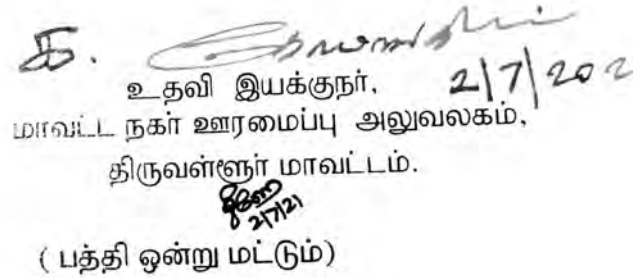 க.
உதவி இயக்குநர், 2/7/202
மாவட்ட நகர் ஊரமைப்பு அலுவலகம்,
திருவள்ளூர் மாவட்டம்.
2/7/21
( பத்தி ஒன்று மட்டும்)